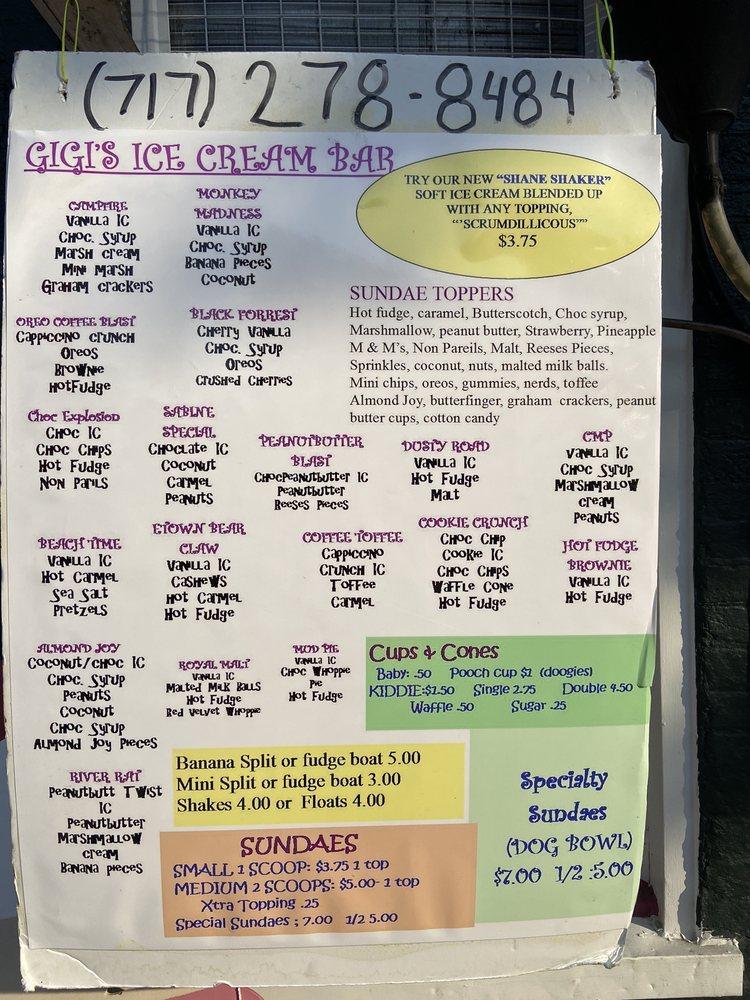 (717) 278-8484
GIGI'S ICE CREAM BAR
TRY OUR NEW "SHANE SHAKER"
SOFT ICE CREAM BLENDED UP
WITH ANY TOPPING,
""SCRUMDILLICOUS""
$3.75
CAMPFIRE
Vanilla IC
Choc. Syrup
Marsh cream
Mini Marsh
Graham crackers
MONKEY
MADNESS
Vanilla IC
Choc. Syrup
Banana Pieces
Coconut
SUNDAE TOPPERS
Hot fudge, caramel, Butterscotch, Choc syrup,
Marshmallow, peanut butter, Strawberry, Pineapple
M & M's, Non Pareils, Malt, Reeses Pieces,
Sprinkles, coconut, nuts, malted milk balls.
Mini chips, oreos, gummies, nerds, toffee
Almond Joy, butterfinger, graham crackers, peanut
butter cups, cotton candy
OREO COFFEE BLAST
Cappiccino crunch
Oreos
Brownie
HotFudge
BLACK FORREST
Cherry Vanilla
Choc. Syrup
Oreos
Crushed Cherries
Choc Explosion
Choc IC
Choc Chips
Hot Fudge
Non Parils
SABINE
SPECIAL
Choclate IC
Coconut
Carmel
Peanuts
PEANUTBUTTER
BLAST
ChocPeanutbutter IC
Peanutbutter
Reeses Pieces
DUSTY ROAD
Vanilla IC
Hot Fudge
Malt
CMP
Vanilla IC
Choc Syrup
Marshmallow
cream
Peanuts
BEACH TIME
Vanilla IC
Hot Carmel
Sea Salt
Pretzels
ETOWN BEAR
CLAW
Vanilla IC
Cashews
Hot Carmel
Hot Fudge
COFFEE TOFFEE
Cappiccino
Crunch IC
Toffee
Carmel
COOKIE CRUNCH
Choc Chip
Cookie IC
Choc Chips
Waffle Cone
Hot Fudge
HOT FUDGE
BROWNIE
Vanilla IC
Hot Fudge
ALMOND JOY
Coconut/choc IC
Choc. Syrup
Peanuts
Coconut
Choc Syrup
Almond Joy Pieces
ROYAL MALT
Vanilla IC
Malted Milk Balls
Hot Fudge
Red Velvet Whoppie
MUD PIE
Vanilla IC
Choc Whoppie
Pie
Hot Fudge
Cups & Cones
Baby: .50 Pooch cup $1 (doogies)
KIDDIE:$1.50 Single 2.75 Double 4.50
Waffle .50 Sugar .25
RIVER RAT
Peanutbutt Twist
IC
Peanutbutter
Marshmallow
cream
Banana pieces
Banana Split or fudge boat 5.00
Mini Split or fudge boat 3.00
Shakes 4.00 or Floats 4.00
SUNDAES
SMALL 1 SCOOP: $3.75 1 top
MEDIUM 2 SCOOPS: $5.00- 1 top
Xtra Topping .25
Special Sundaes ; 7.00 1/2 5.00
Specialty
Sundaes
(DOG BOWL)
$7.00 1/2 :5.00